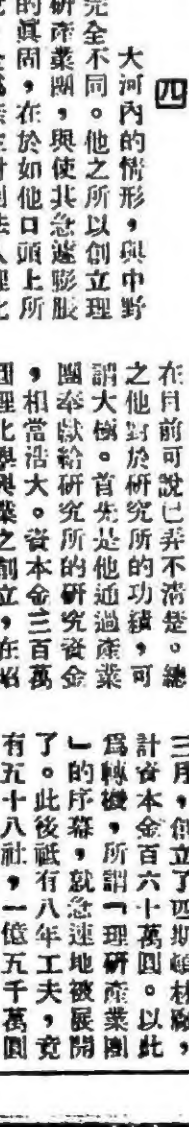 四
大河內的情形，與中野
完全不同。他之所以創立理
研產業團，與使其急遽膨脹
的眞固，在於如他口頭上所
在目前可說已弄不清楚。總
之他對於研究所的功績，可
謂大極。首先是他通過產業
團奉獻給研究所的研究資金
，相當浩大。資本金三百萬
理化學興業之創立，在昭
三月，創立了
計資本金百六十萬圓。以此
爲轉機，所謂「理研產業團
」的序幕，就急速地被展開
了。此後祇有八年工夫，竟
有五十八社，一億五千萬圓